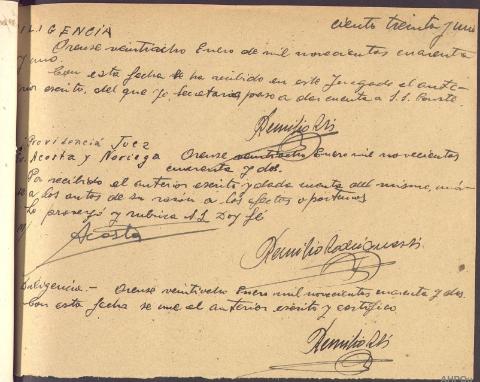 ciento treinta y uno
ILIGENCIA
Orense veintiocho Enero de mil novecientos cuarenta
y uno.
Con esta fecha se ha recibido en este Juzgado el ante-
rior escrito, del que yo Secretario paso a dar cuenta a S.S. 
Providencia Juez
Sr. Acosta y Noriega Orense veintiocho Enero mil novecientos
cuarenta y dos.
Por recibido el anterior escrito y dada cuenta del mismo, úna-
a los autos de su razón a los efectos oportunos
Lo proveyó y rubrica S.S. Doy fé
Acosta
Diligencia.- Orense veintiocho Enero mil novecientos cuarenta y dos
Con esta fecha se une el anterior escrito y certifico